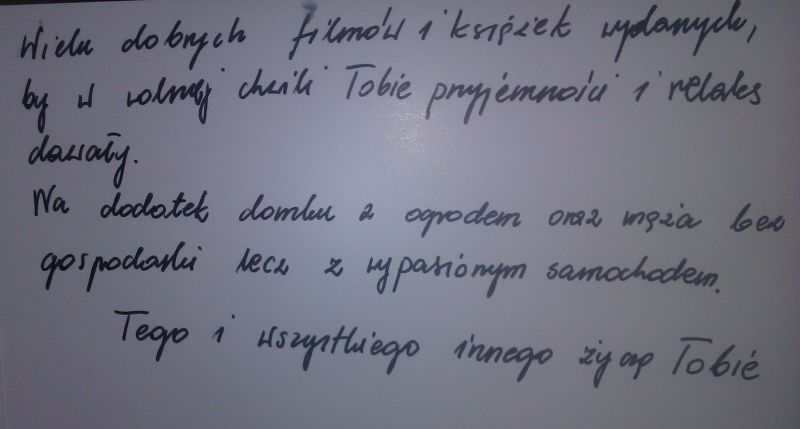 Wielu dobrych filmów i książek wydanych,
by w wolnej chwili Tobie przyjemności i relaks
dawały.
Na dodatek domku z ogrodem oraz męża bez
gospodarki lecz z wypasionym samochodem.
Tego i wszystkiego innego życzę Tobie